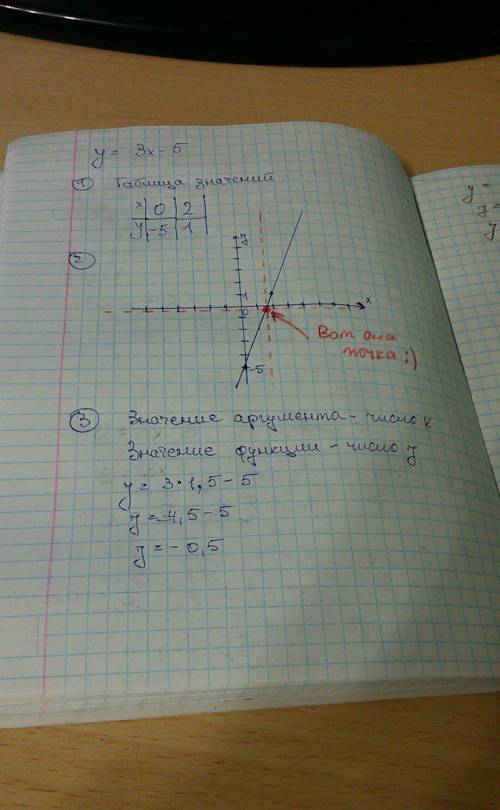 y = 3x - 5
① Таблица значений
x | 0 | 2
y | -5 | 1
②
y
1
0
x
-5
Вот она
точка :)
③ Значение аргумента - число x
Значение функции - число y
y = 3 · 1,5 - 5
y = 4,5 - 5
y = - 0,5
y =
y =
y